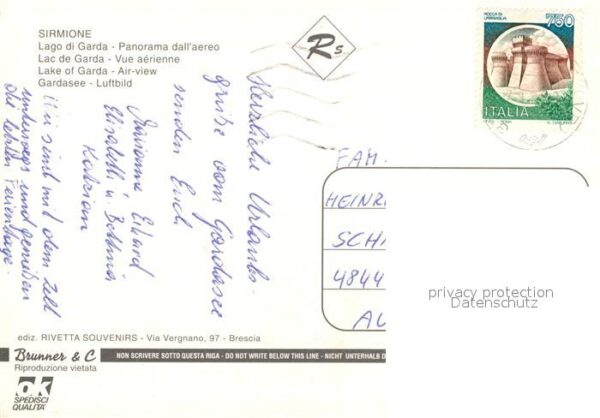 SIRMIONE
Lago di Garda - Panorama dall'aereo
Lac de Garda - Vue aérienne
Lake of Garda - Air-view
Gardasee - Luftbild
Rs
ROCCA DI URBISAGLIA
750
ITALIA
Herzliche Urlaubs-
grüße vom Gardasee
senden Euch
Marianne Erhard
Elisabeth u. Bettina
Wir sind mit dem Zelt
unterwegs und genießen
die letzten Ferientage.
FAM.
HEINR
SCHA
4844
AU
privacy protection
Datenschutz
ediz. RIVETTA SOUVENIRS - Via Vergnano, 97 - Brescia
Brunner & C
Riproduzione vietata
NON SCRIVERE SOTTO QUESTA RIGA - DO NOT WRITE BELOW THIS LINE - NICHT UNTERHALB D
ok
SPEDISCI
QUALITÀ